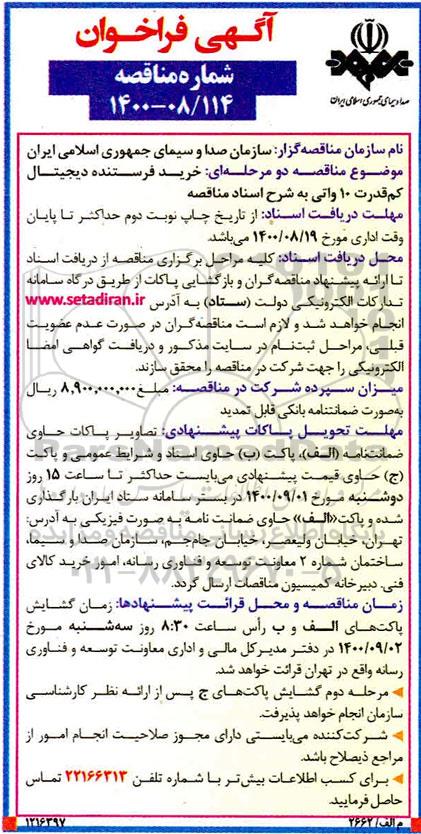 آگهی فراخوان
شماره مناقصه
۱۴۰۰-۰۸/۱۱۴
صدا و سیمای جمهوری اسلامی ایران
نام سازمان مناقصه‌گزار: سازمان صدا و سیمای جمهوری اسلامی ایران
موضوع مناقصه دو مرحله‌ای: خرید فرستنده دیجیتال
کم‌قدرت ۱۰ واتی به شرح اسناد مناقصه
مهلت دریافت اسناد: از تاریخ چاپ نوبت دوم حداکثر تا پایان
وقت اداری مورخ ۱۴۰۰/۰۸/۱۹ می‌باشد.
محل دریافت اسناد: کلیه مراحل برگزاری مناقصه از دریافت اسناد
تا ارائه پیشنهاد مناقصه‌گران و بازگشایی پاکات از طریق درگاه سامانه
تدارکات الکترونیکی دولت (ستاد) به آدرس www.setadiran.ir
انجام خواهد شد و لازم است مناقصه‌گران در صورت عدم عضویت
قبلی، مراحل ثبت‌نام در سایت مذکور و دریافت گواهی امضا
الکترونیکی را جهت شرکت در مناقصه را محقق سازند.
میزان سپرده شرکت در مناقصه: مبلغ ۸,۹۰۰,۰۰۰,۰۰۰ ریال
به‌صورت ضمانتنامه بانکی قابل تمدید
مهلت تحویل پاکات پیشنهادی: تصاویر پاکات حاوی
ضمانتنامه (الف)، پاکت (ب) حاوی اسناد و شرایط عمومی و پاکت
(ج) حاوی قیمت پیشنهادی می‌بایست حداکثر تا ساعت ۱۵ روز
دوشنبه مورخ ۱۴۰۰/۰۹/۰۱ در بستر سامانه ستاد ایران بارگذاری
شده و پاکت «الف» حاوی ضمانت نامه به صورت فیزیکی به آدرس:
تهران، خیابان ولیعصر، خیابان جام‌جم، سازمان صدا و سیما،
ساختمان شماره ۲ معاونت توسعه و فناوری رسانه، امور خرید کالای
فنی، دبیرخانه کمیسیون مناقصات ارسال گردد.
زمان مناقصه و محل قرائت پیشنهادها: زمان گشایش
پاکت‌های الف و ب رأس ساعت ۸:۳۰ روز سه‌شنبه مورخ
۱۴۰۰/۰۹/۰۲ در دفتر مدیرکل مالی و اداری معاونت توسعه و فناوری
رسانه واقع در تهران قرائت خواهد شد.
◄ مرحله دوم گشایش پاکت‌های ج پس از ارائه نظر کارشناسی
سازمان انجام خواهد پذیرفت.
◄ شرکت‌کننده می‌بایستی دارای مجوز صلاحیت انجام امور از
مراجع ذیصلاح باشد.
◄ برای کسب اطلاعات بیش‌تر با شماره تلفن ۲۲۱۶۶۳۱۳ تماس
حاصل فرمایید.
م الف/ ۲۶۶۲
۱۲۱۶۳۹۷